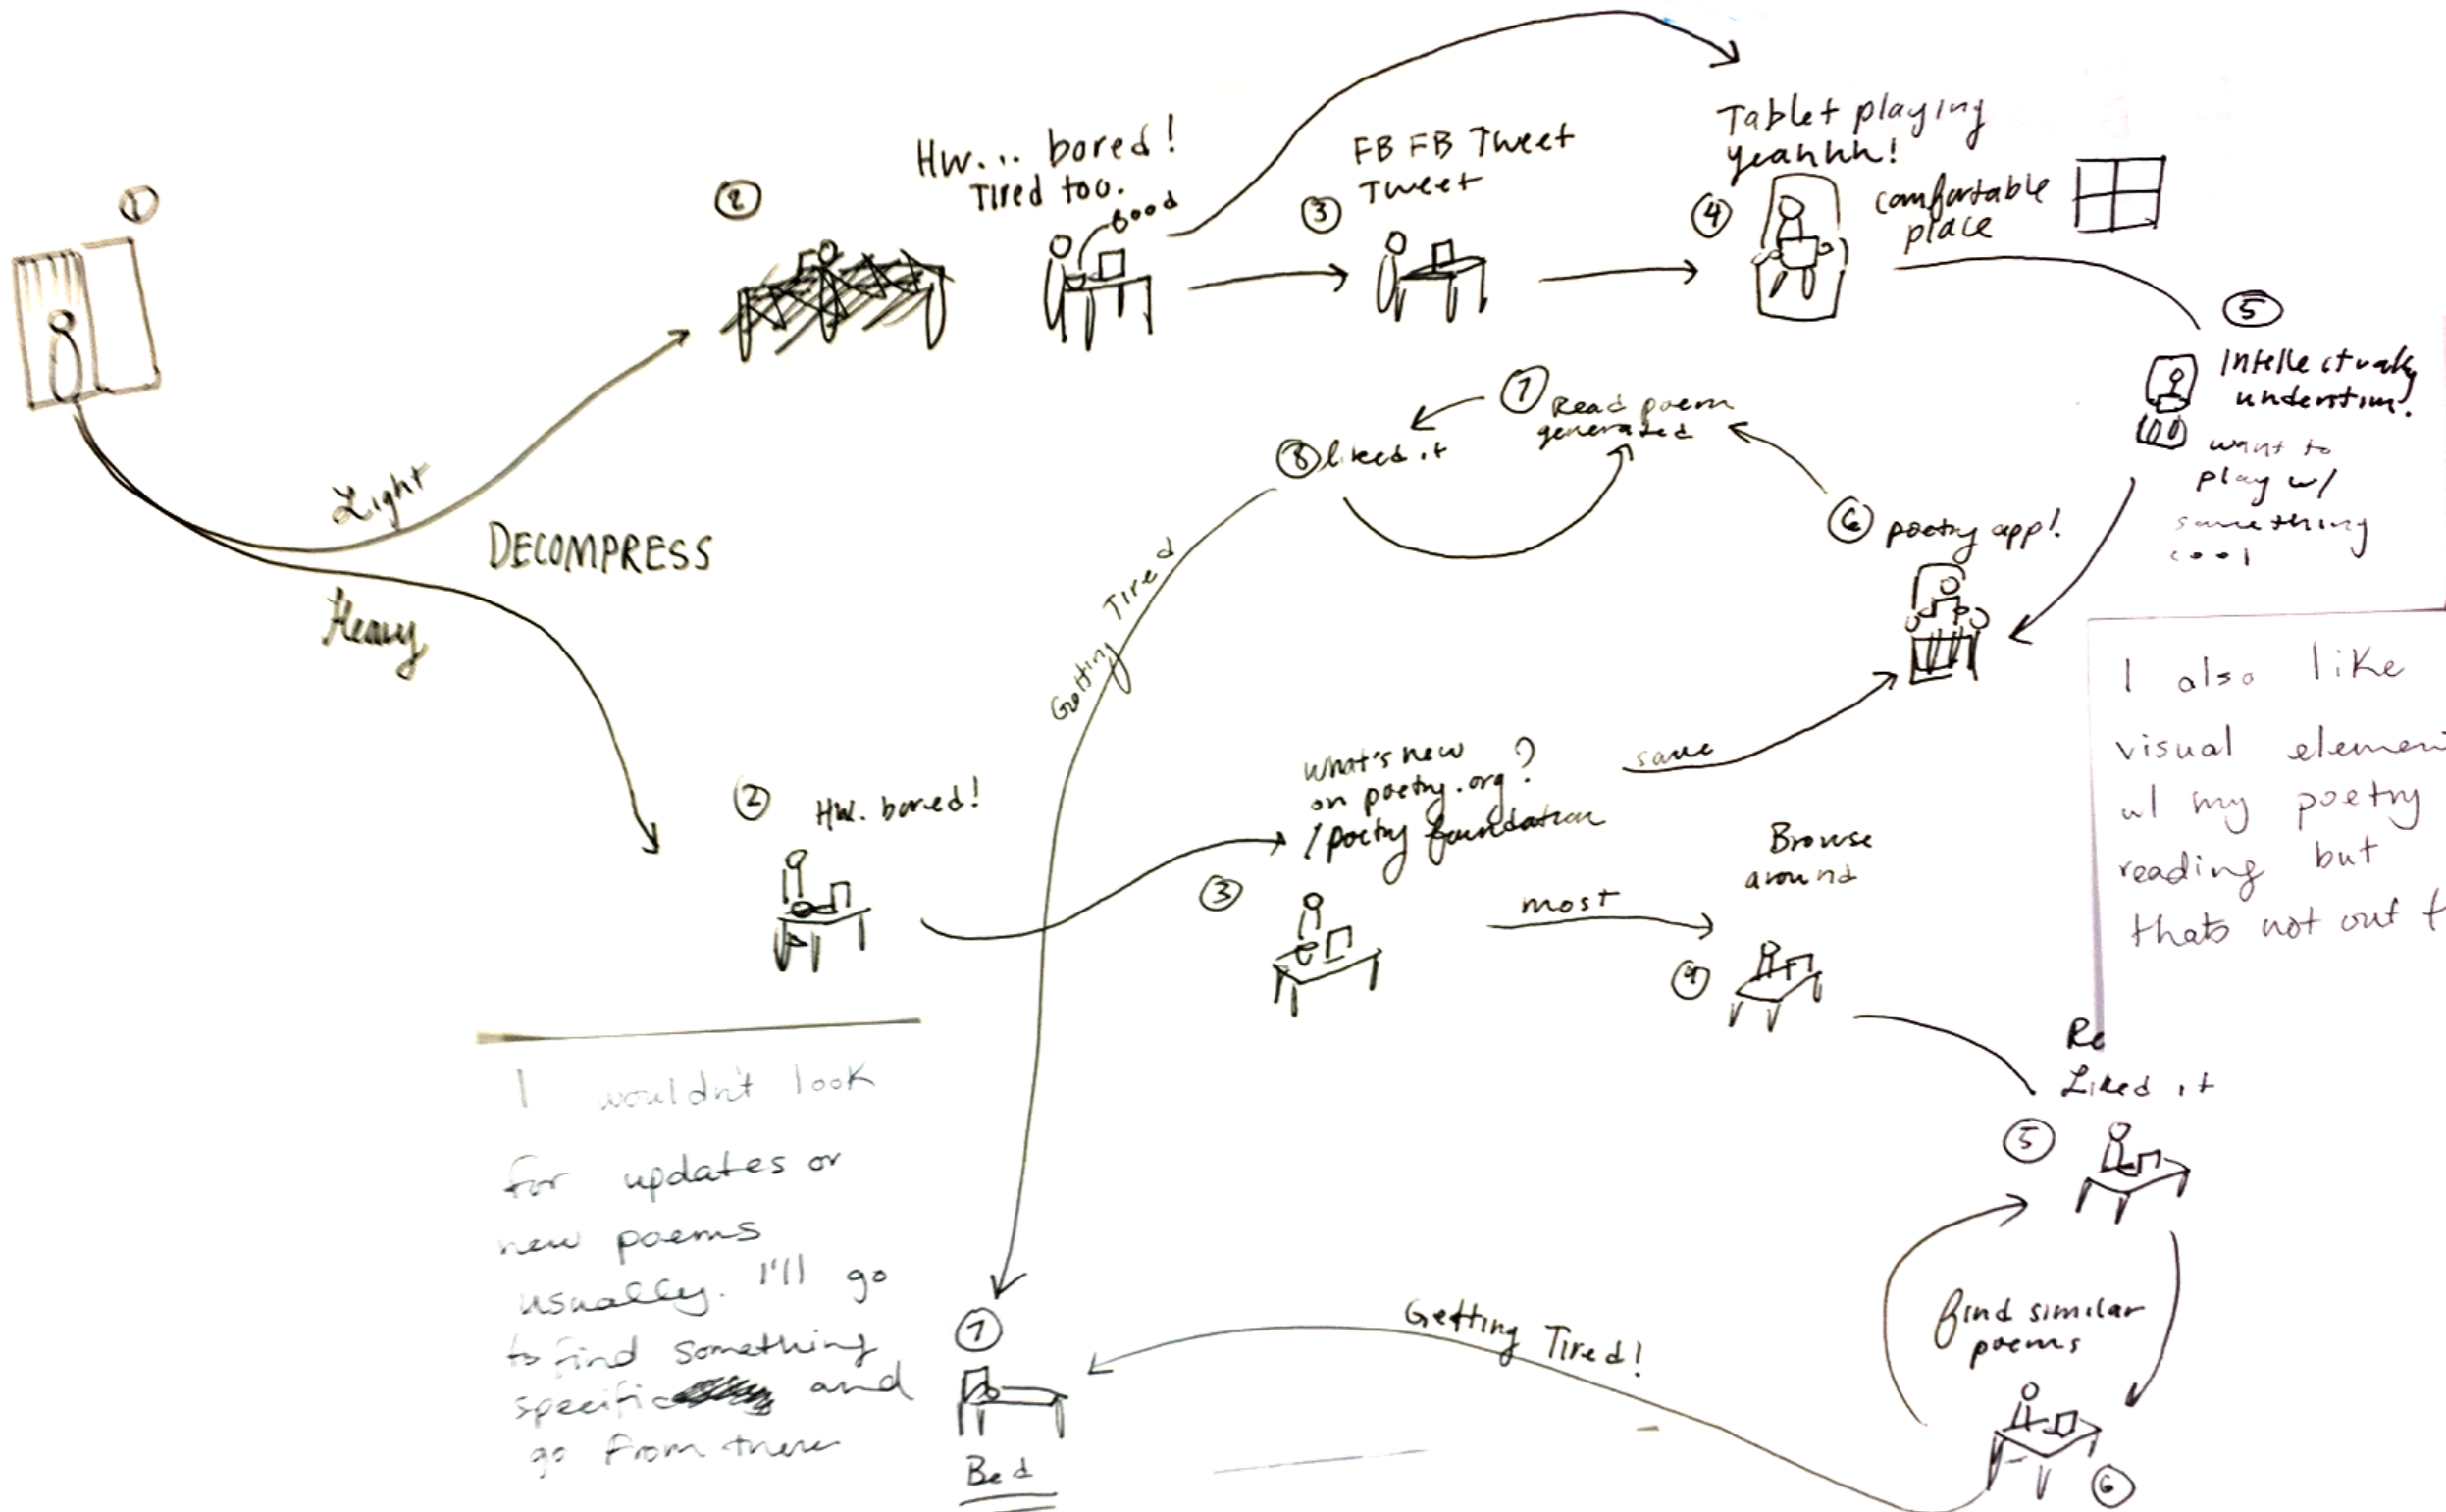 1
2
HW... bored!
Tired too.
Food
3
FB FB Tweet
Tweet
4
Tablet playing
yeahhh!
comfortable
place
5
Intellectually
understim.
want to
play w/
something
cool
6
poetry app!
7
Read poem
generated
8
liked it
Getting Tired
Light
DECOMPRESS
Heavy
2
HW. bored!
3
What's new
on poetry.org?
/ poetry foundation
same
most
Browse
around
4
Re
Liked it
5
find similar
poems
6
Getting Tired!
7
Bed
I wouldn't look
for updates or
new poems
usually. I'll go
to find something
specific and
go from there
I also like
visual elemen
w/ my poetry
reading but
thats not out t